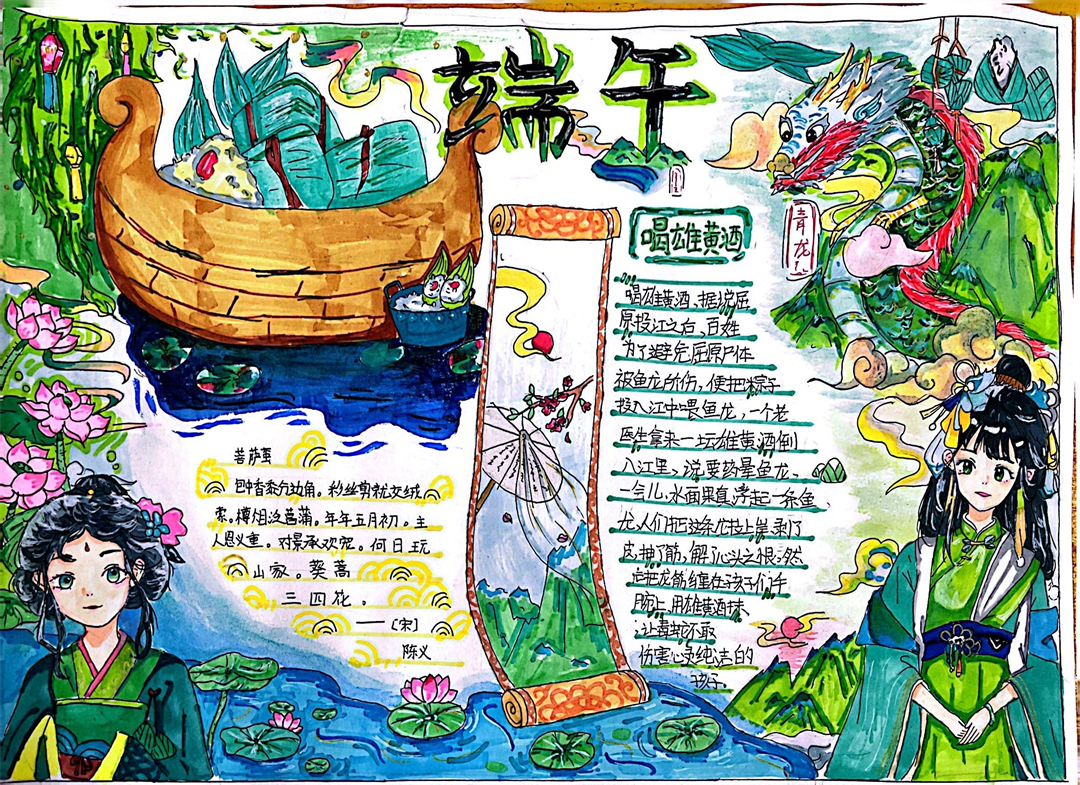 端午
青龙
喝雄黄酒
喝雄黄酒、据说屈
原投江之后，百姓
为了避免屈原尸体
被鱼龙所伤，便把粽子
投入江中喂鱼龙，一个老
医生拿来一坛雄黄酒倒
入江里，说要药晕鱼龙、
一会儿，水面果真浮起一条鱼
龙、人们把这条龙拉上岸、剥了
皮、抽了筋，解了心头之恨，然
后把龙筋缠在孩子们手
腕上，用雄黄酒抹
，让毒蛇不敢
伤害心灵纯洁的
孩子。
菩萨蛮
包中香黍分边角。彩丝剪就交绒
索。樽俎泛菖蒲。年年五月初。主
人恩义重。对景承欢宠。何日玩
山家。葵蒿
三四花。
——[宋]
陈义